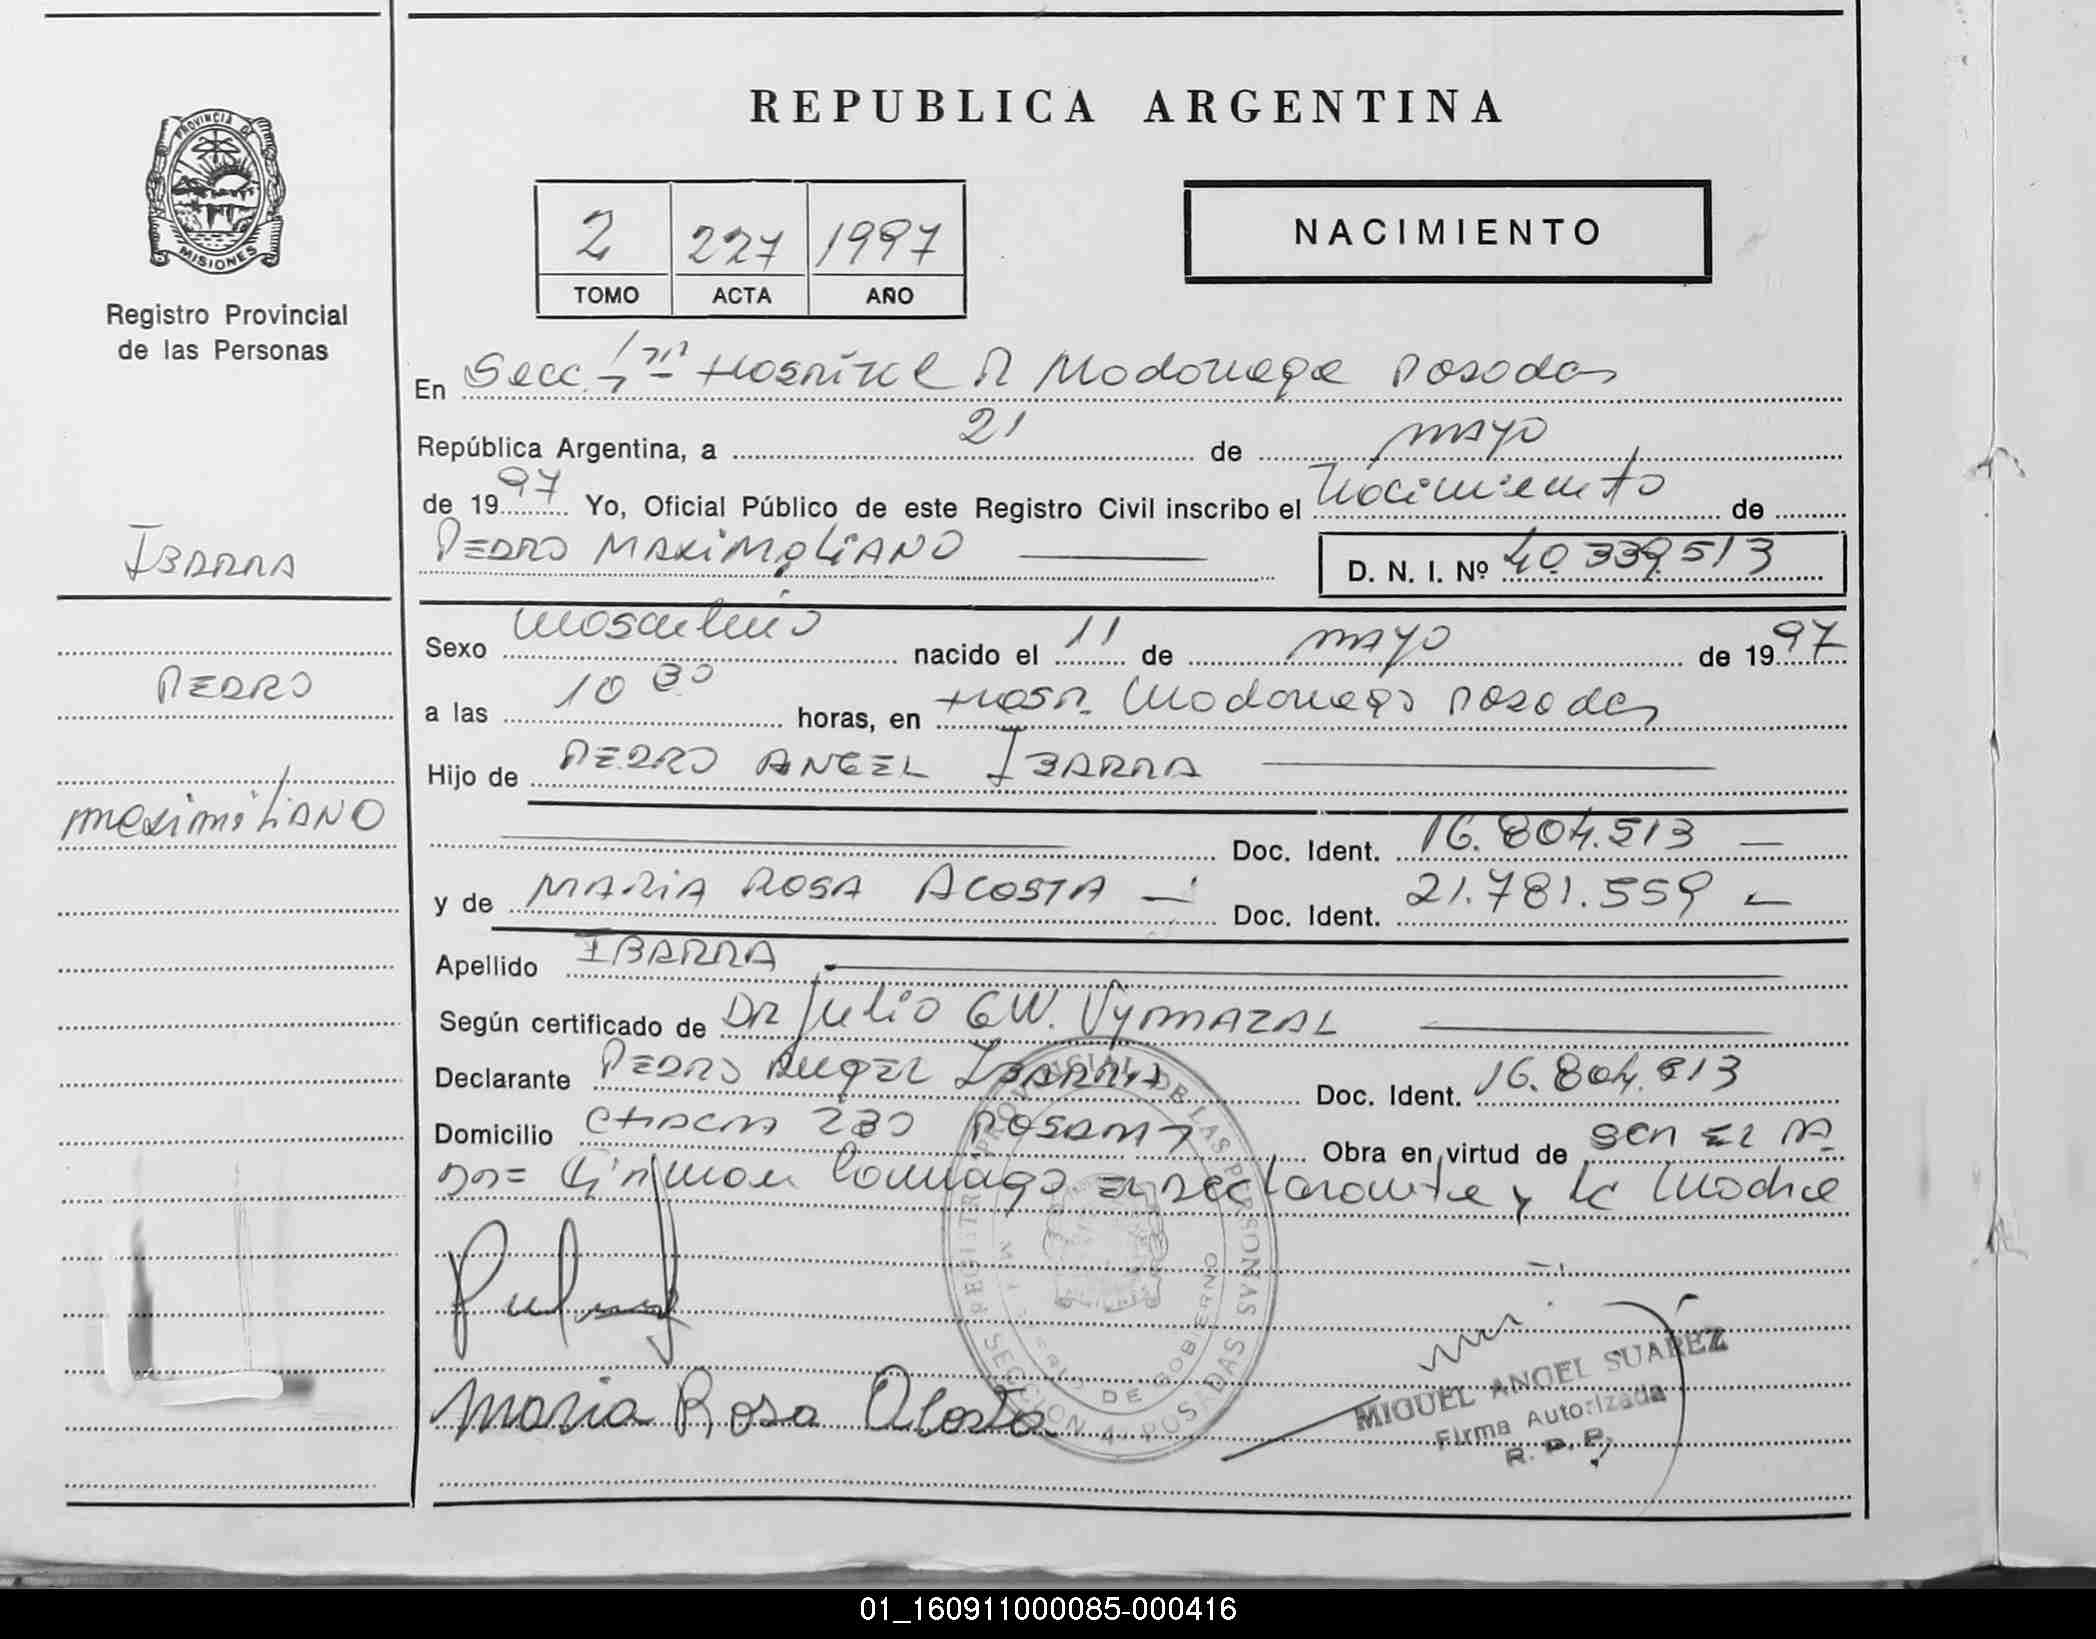 REPUBLICA ARGENTINA
PROVINCIA DE
MISIONES
Registro Provincial
de las Personas
2 227 1997
TOMO ACTA AÑO
NACIMIENTO
En Secc. Hospital R Madariaga Posadas
República Argentina, a 21 de mayo
de 1997 Yo, Oficial Público de este Registro Civil inscribo el Nacimiento de
PEDRO MAXIMILIANO D. N. I. Nº 40.339.513
IBARRA
PEDRO
MAXIMILIANO
Sexo Masculino nacido el 11 de mayo de 1997
a las 10 30 horas, en Hosp. Madariaga Posadas
Hijo de PEDRO ANGEL IBARRA
Doc. Ident. 16.804.513
y de MARIA ROSA ACOSTA Doc. Ident. 21.781.559
Apellido IBARRA
Según certificado de DR Julio GW. VYMAZAL
Declarante PEDRO ANGEL IBARRA Doc. Ident. 16.804.513
Domicilio CHACRA 230 POSADAS Obra en virtud de SER EL PA
DRE Firman conmigo EL DECLARANTE y la Madre
REGISTRO PROVINCIAL DE LAS PERSONAS
DE GOBIERNO
SECCION 4 POSADAS
Maria Rosa Acosta
MIGUEL ANGEL SUAREZ
Firma Autorizada
R. P. P.
01_160911000085-000416